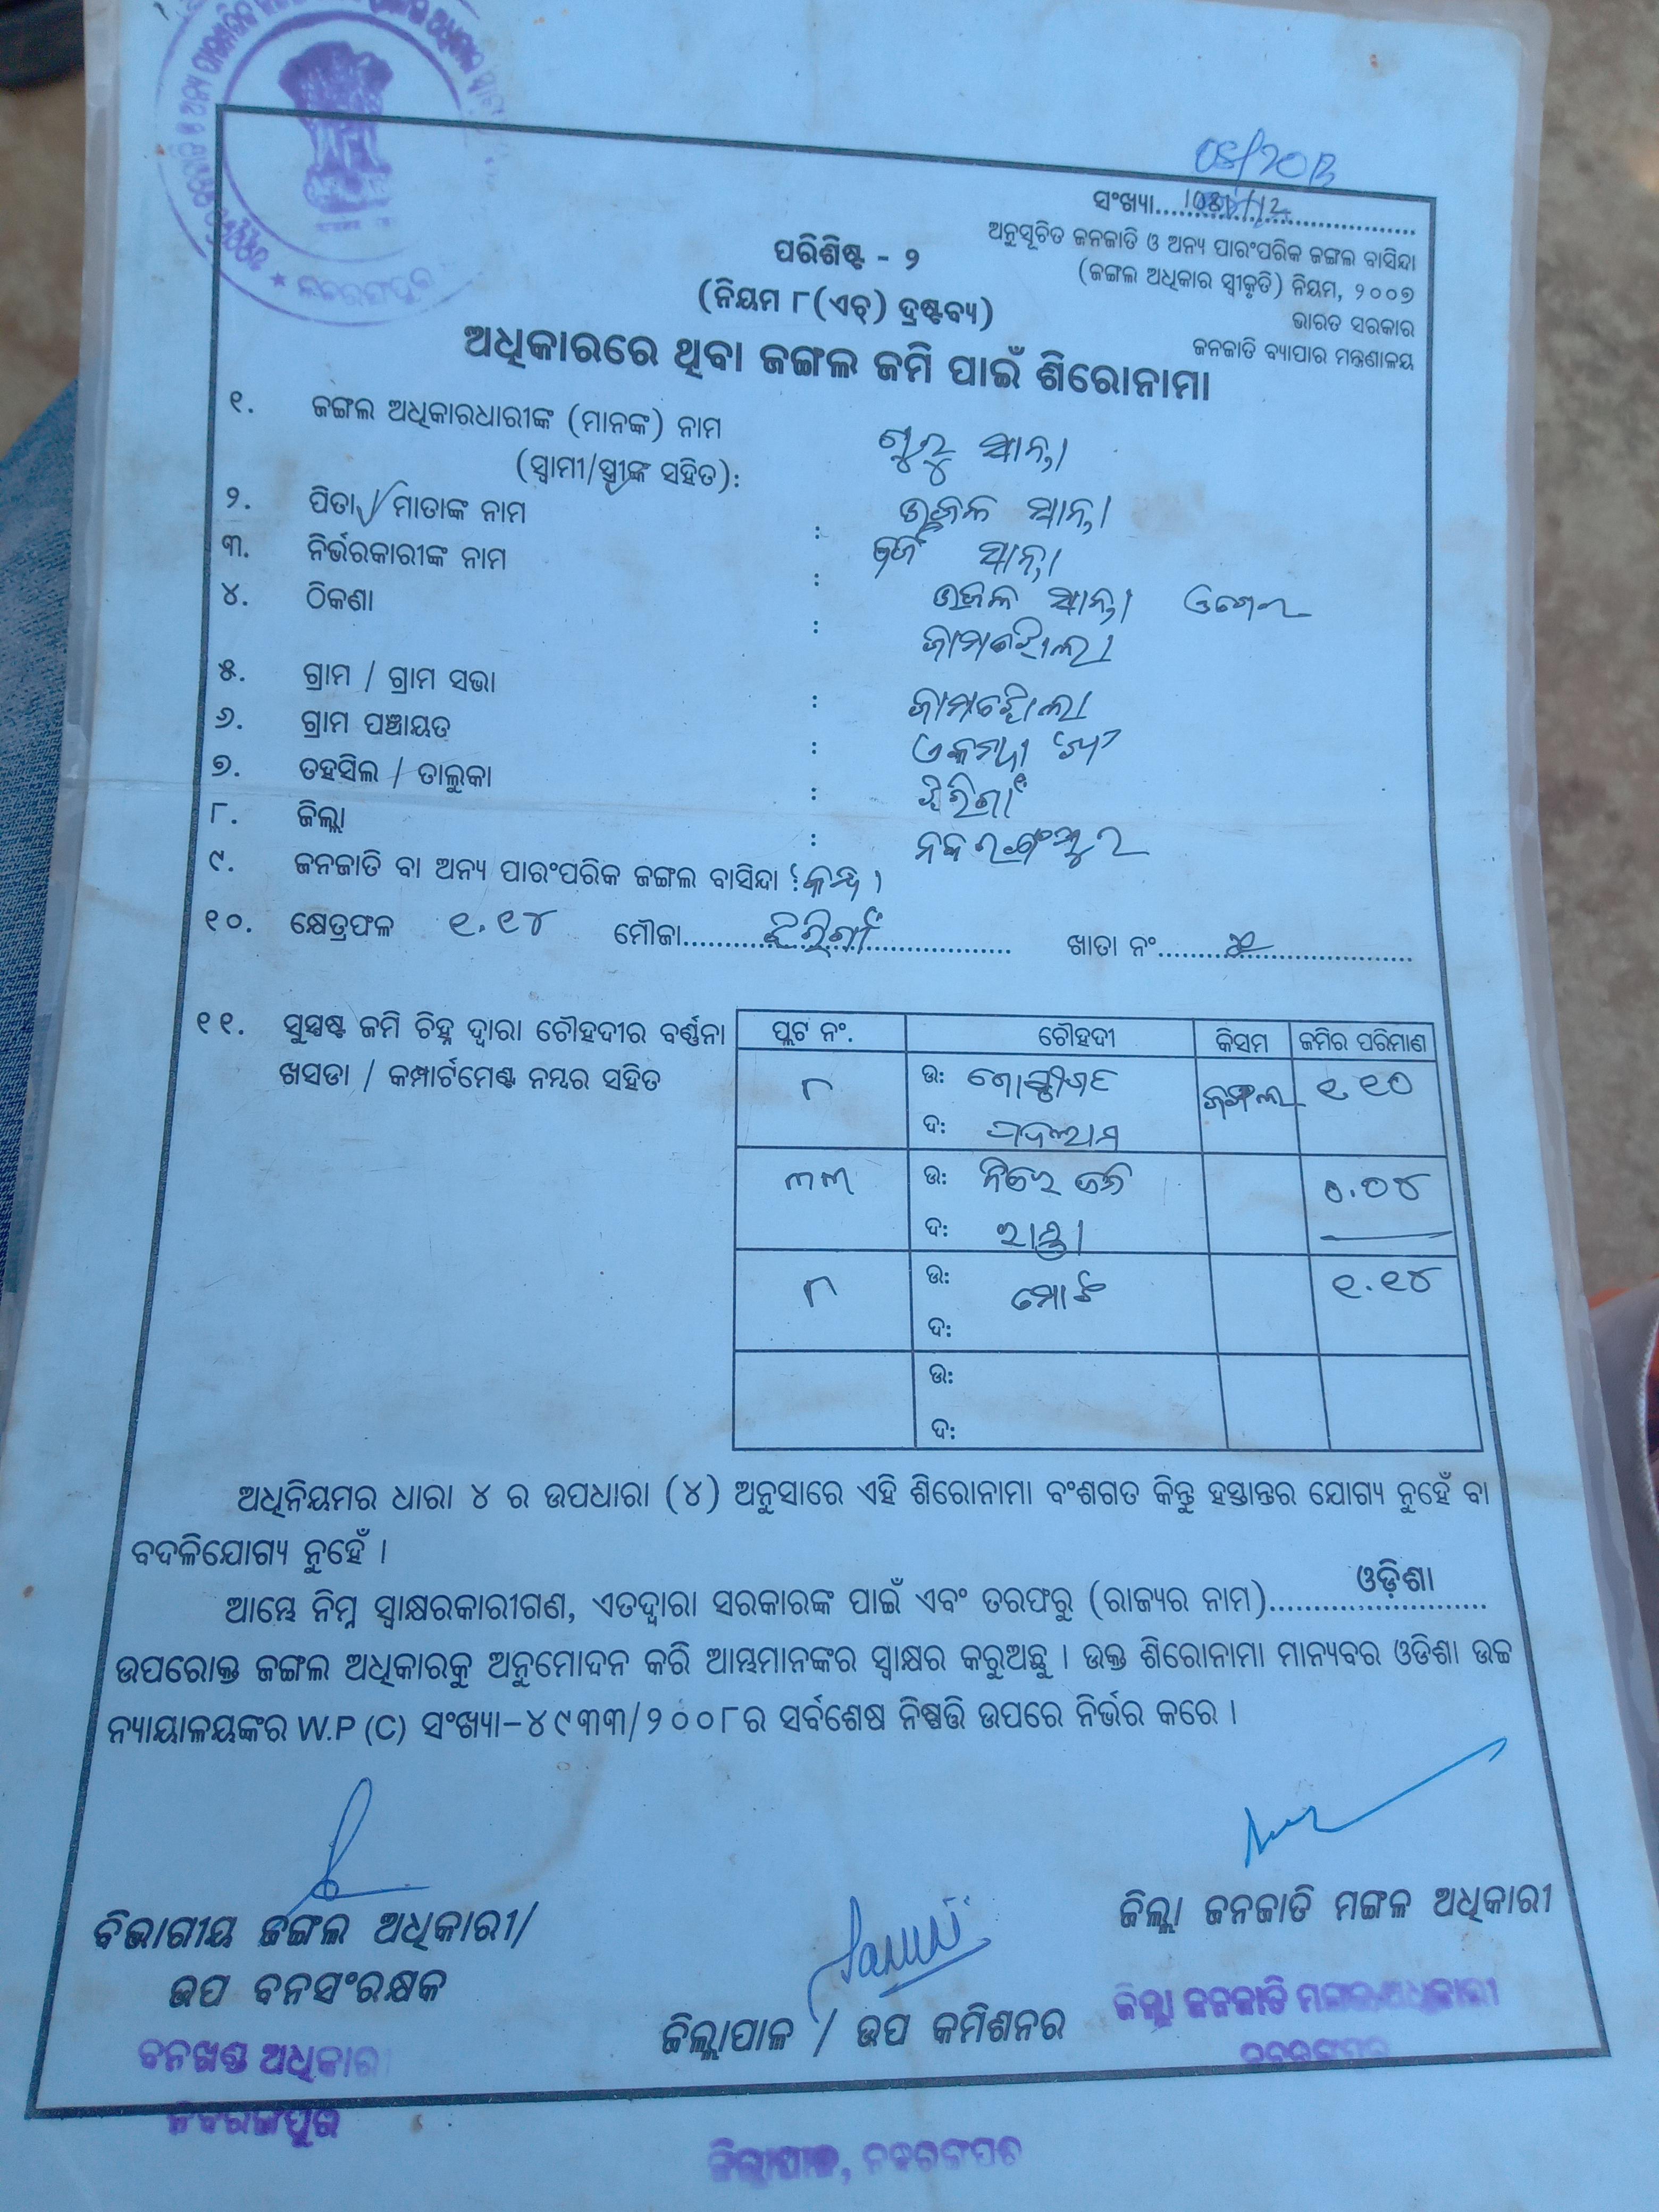 08/2013
ସଂଖ୍ୟା
ଅନୁସୂଚିତ ଜନଜାତି ଓ ଅନ୍ୟ ପାରଂପରିକ ଜଙ୍ଗଲ ବାସିନ୍ଦା
(ଜଙ୍ଗଲ ଅଧିକାର ସ୍ୱୀକୃତି) ନିୟମ, ୨୦୦୭
ଭାରତ ସରକାର
ଜନଜାତି ବ୍ୟାପାର ମନ୍ତ୍ରଣାଳୟ
ପରିଶିଷ୍ଟ - ୨
(ନିୟମ ୮(ଏଚ୍) ଦ୍ରଷ୍ଟବ୍ୟ)
ଅଧିକାରରେ ଥିବା ଜଙ୍ଗଲ ଜମି ପାଇଁ ଶିରୋନାମା
୧. ଜଙ୍ଗଲ ଅଧିକାରଧାରୀଙ୍କ (ମାନଙ୍କ) ନାମ
(ସ୍ୱାମୀ/ସ୍ତ୍ରୀଙ୍କ ସହିତ):
୨. ପିତା / ମାତାଙ୍କ ନାମ :
୩. ନିର୍ଭରକାରୀଙ୍କ ନାମ :
୪. ଠିକଣା :
୫. ଗ୍ରାମ / ଗ୍ରାମ ସଭା :
୬. ଗ୍ରାମ ପଞ୍ଚାୟତ :
୭. ତହସିଲ / ତାଲୁକା : ଝରିଗାଁ
୮. ଜିଲ୍ଲା : ନବରଙ୍ଗପୁର
୯. ଜନଜାତି ବା ଅନ୍ୟ ପାରଂପରିକ ଜଙ୍ଗଲ ବାସିନ୍ଦା : କନ୍ଧ
୧୦. କ୍ଷେତ୍ରଫଳ ୧.୧୪ ମୌଜା ଝରିଗାଁ ଖାତା ନଂ
୧୧. ସୁସ୍ପଷ୍ଟ ଜମି ଚିହ୍ନ ଦ୍ୱାରା ଚୌହଦୀର ବର୍ଣ୍ଣନା
ଖସଡା / କମ୍ପାର୍ଟମେଣ୍ଟ ନମ୍ବର ସହିତ
ପ୍ଲଟ ନଂ. ଚୌହଦୀ କିସମ ଜମିର ପରିମାଣ
୮ ଉ: ଜଙ୍ଗଲ ୧.୧୦
ଦ:
୩୩ ଉ: ୦.୦୪
ଦ: ରାସ୍ତା
୮ ଉ: ମୋଟ ୧.୧୪
ଦ:
ଉ:
ଦ:
ଅଧିନିୟମର ଧାରା ୪ ର ଉପଧାରା (୪) ଅନୁସାରେ ଏହି ଶିରୋନାମା ବଂଶଗତ କିନ୍ତୁ ହସ୍ତାନ୍ତର ଯୋଗ୍ୟ ନୁହେଁ ବା
ବଦଳିଯୋଗ୍ୟ ନୁହେଁ ।
ଆମ୍ଭେ ନିମ୍ନ ସ୍ୱାକ୍ଷରକାରୀଗଣ, ଏତଦ୍ୱାରା ସରକାରଙ୍କ ପାଇଁ ଏବଂ ତରଫରୁ (ରାଜ୍ୟର ନାମ) ଓଡ଼ିଶା
ଉପରୋକ୍ତ ଜଙ୍ଗଲ ଅଧିକାରକୁ ଅନୁମୋଦନ କରି ଆମ୍ଭମାନଙ୍କର ସ୍ୱାକ୍ଷର କରୁଅଛୁ । ଉକ୍ତ ଶିରୋନାମା ମାନ୍ୟବର ଓଡିଶା ଉଚ୍ଚ
ନ୍ୟାୟାଳୟଙ୍କର W.P (C) ସଂଖ୍ୟା–୪୯୩୩/୨୦୦୮ର ସର୍ବଶେଷ ନିଷ୍ପତ୍ତି ଉପରେ ନିର୍ଭର କରେ ।
ବିଭାଗୀୟ ଜଙ୍ଗଲ ଅଧିକାରୀ/
ଉପ ବନସଂରକ୍ଷକ
ବନଖଣ୍ଡ ଅଧିକାରୀ
ନବରଙ୍ଗପୁର
ଜିଲ୍ଲାପାଳ / ଉପ କମିଶନର
ଜିଲ୍ଲାପାଳ, ନବରଙ୍ଗପୁର
ଜିଲ୍ଲା ଜନଜାତି ମଙ୍ଗଳ ଅଧିକାରୀ
ଜିଲ୍ଲା ଜନଜାତି ମଙ୍ଗଳ ଅଧିକାରୀ
ନବରଙ୍ଗପୁର